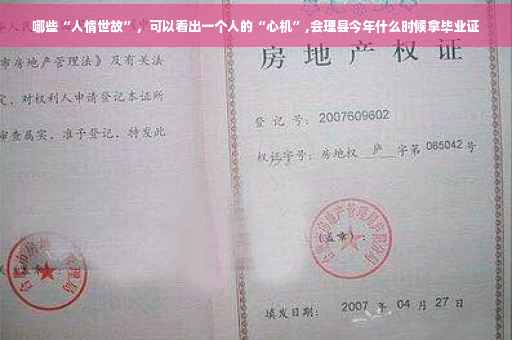 哪些“人情世故”，可以看出一个人的“心机”,会理县今年什么时候拿毕业证
市房地产管理法》及有关法
定，对权利人申请登记本证所
审查属实，准予登记，特发此
房地产权证
登记号：2007609602
权证字号：房地权 庐 字第 065042 号
(盖章)：
填发日期： 2007 年 04 月 27 日